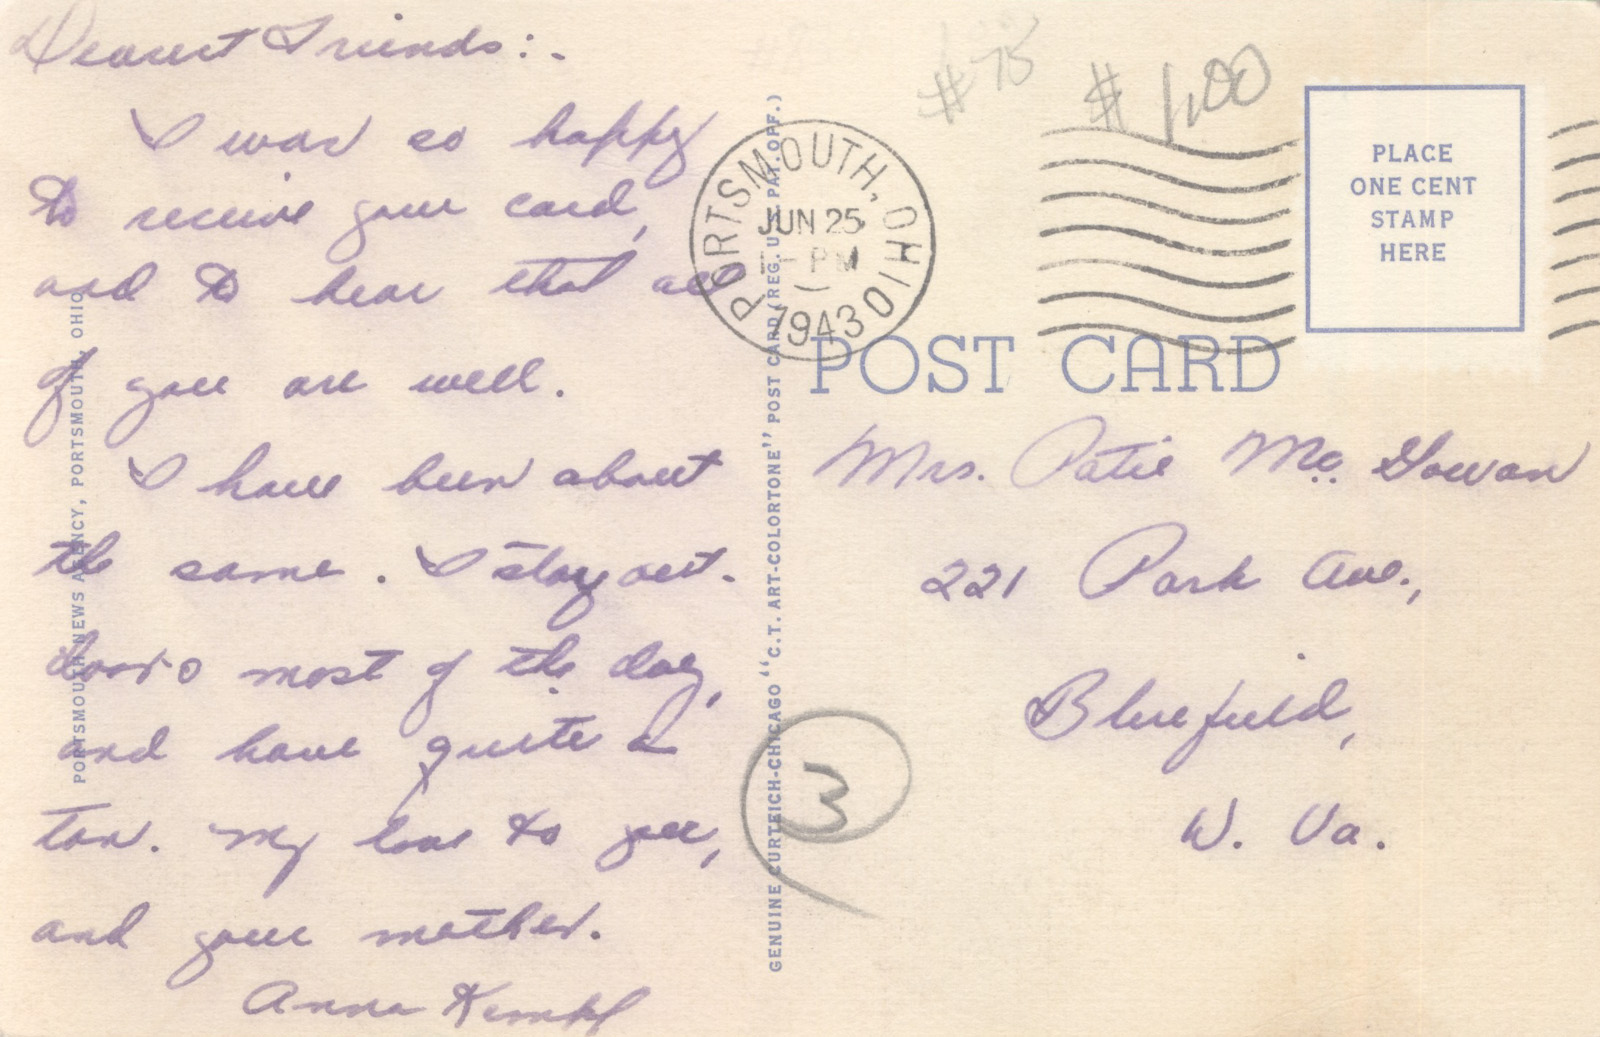 Dearest Friends:-
I was so happy
to receive your card,
and to hear that all
of you are well.
I have been about
the same. I stay out-
doors most of the day,
and have quite a
tan. My love to you,
and your mother.
Anna
PORTSMOUTH NEWS AGENCY, PORTSMOUTH, OHIO
GENUINE CURTEICH-CHICAGO "C.T. ART-COLORTONE" POST CARD (REG. U.S. PAT. OFF.)
#75
$1.00
PORTSMOUTH, OHIO
JUN 25
PM
1943
PLACE
ONE CENT
STAMP
HERE
POST CARD
Mrs. Patie Mc. Gowan
221 Park Ave.,
Bluefield,
W. Va.
3